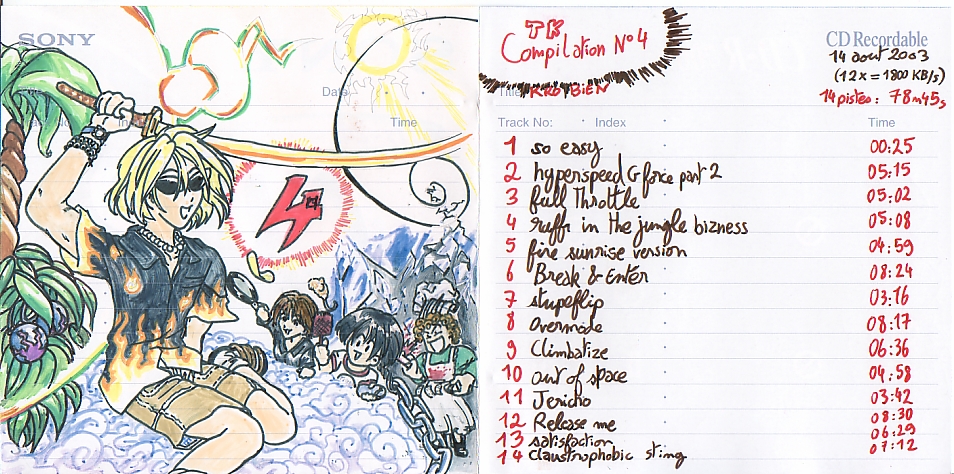 SONY
Date
Time
4
TK
Compilation N°4
CD Recordable
14 aout 2003
(12x = 1800 KB/s)
Title KRO BIEN
14 pistes: 78m45s
Track No: Index Time
1 so easy 00:25
2 hyperspeed G force part 2 05:15
3 full Throttle 05:02
4 ruff in the jungle bizness 05:08
5 fire sunrise version 04:59
6 Break & Enter 08:24
7 stupeflip 03:16
8 overmode 08:17
9 Climbatize 06:36
10 out of space 04:58
11 Jericho 03:42
12 Release me 08:30
13 satisfaction 06:29
14 claustrophobic sting 07:12